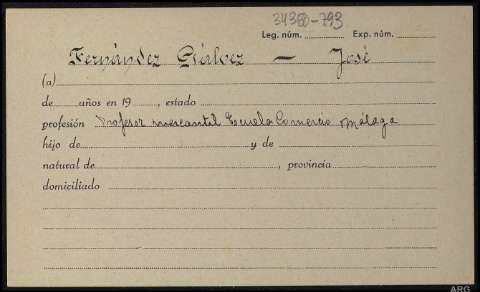 34380-793
Leg. núm. Exp. núm.
Fernández Giálvez — José
(a)
de años en 19 , estado
profesión Profesor mercantil Escuela Comercio Málaga
hijo de y de
natural de , provincia
domiciliado
ARG